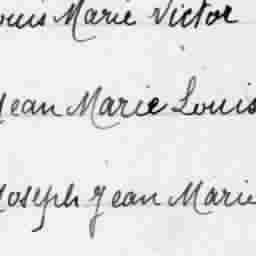 ouis Marie Victor
Jean Marie Louis
Joseph Jean Marie